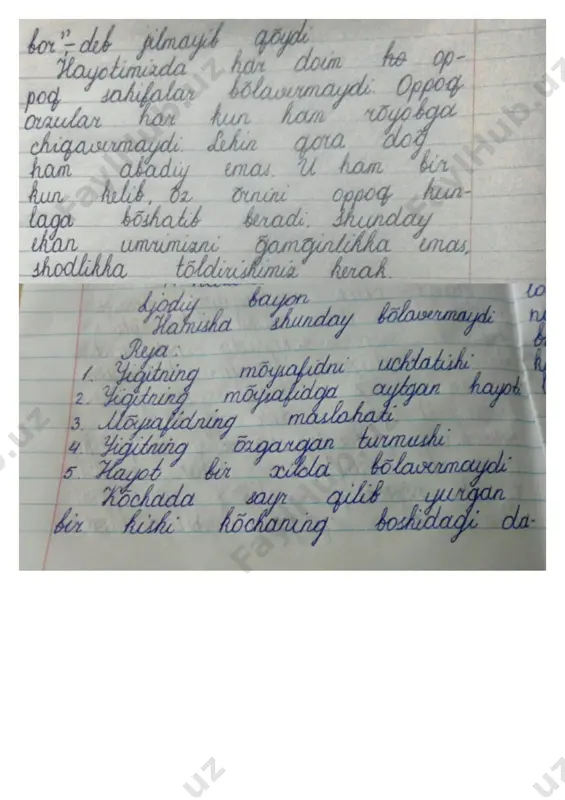 bor" - deb jilmayib qōydi.
Hayotimizda har doim ho op-
poq sahifalar bōlavermaydi. Oppoq
orzular har kun ham rōyobga
chiqavermaydi. Lekin qora dog
ham abadiy emas. U ham bir
kun kelib, ōz ōrnini oppoq kun-
laga bōshatib beradi. Shunday
ekan umrimizni ḡamginlikka emas,
shodlikka tōldirishimiz kerak.
Ijodiy bayon
Hamisha shunday bōlavermaydi
Reja:
1. Yigitning mōysafidni uchlatishi
2. Yigitning mōysafidga aytgan hayoti
3. Mōysafidning maslahati
4. Yigitning ōzgargan turmushi
5. Hayot bir xilda bōlavermaydi
Kōchada sayr qilib yurgan
bir kishi kōchaning boshidagi da-
FaylHub.uz
FaylHub.uz
FaylHub.uz
FaylHub.uz
uz
uz
uz